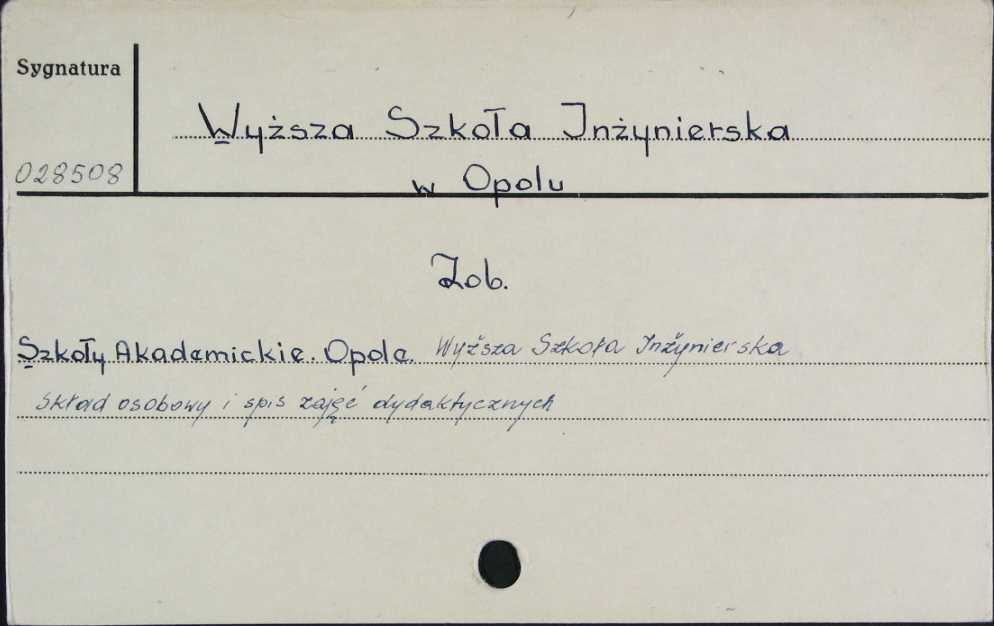 Sygnatura
Wyższa Szkoła Inżynierska
028508
w Opolu
Zob.
Szkoły Akademickie. Opole. Wyższa Szkoła Inżynierska
Skład osobowy i spis zajęć dydaktycznych